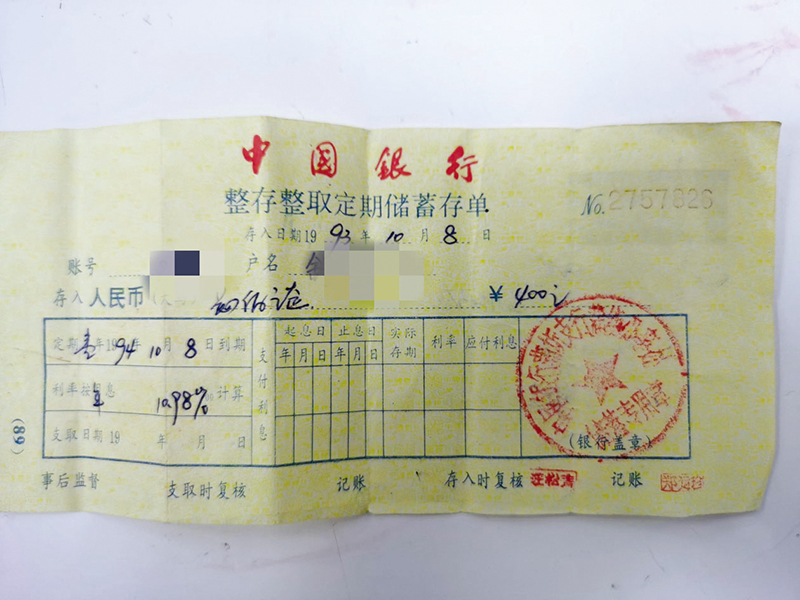 中国銀行
整存整取定期储蓄存单
No. 2757626
存入日期19 93 年 10 月 8 日
账号 户名
存入人民币 ¥ 400元
定期 壹 年 19 94 年 10 月 8 日到期
利率按 年 息 10.98% 计算
支取日期19 年 月 日
支付利息
起息日 止息日 实际存期 利率 应付利息
年 月 日 年 月 日
(银行盖章)
储蓄专用章
(89)
事后监督 支取时复核 记账 存入时复核 汪松涛 记账